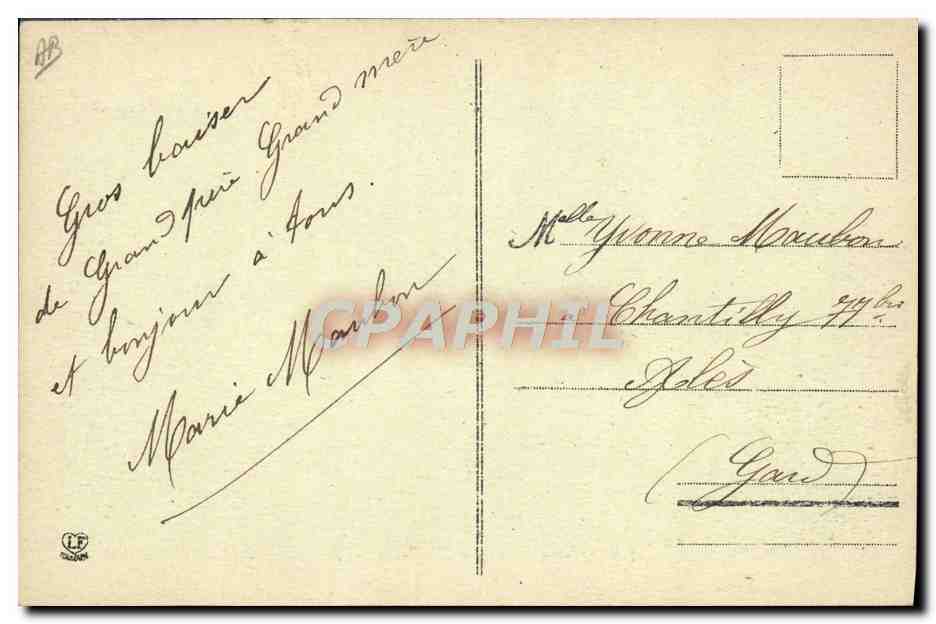 AB
Gros baiser
de Grand père Grand mère
et bonjour à tous.
Marie Maubon
Melle Yvonne Maubon
à Chantilly 77 bis
Alès
(Gard)
CPAPHIL
LF